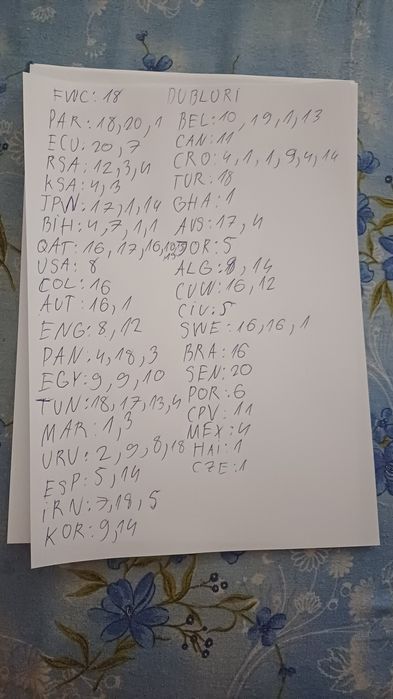 FWC: 18
DUBLURI
PAR: 18, 20, 1
ECU: 20, 7
RSA: 12, 3, 4
KSA: 4, 3
JPN: 17, 1, 14
BIH: 4, 7, 1, 1
QAT: 16, 17, 16,
USA: 8
COL: 16
AUT: 16, 1
ENG: 8, 12
PAN: 4, 18, 3
EGY: 9, 9, 10
TUN: 18, 17, 13, 4
MAR: 1, 3
URU: 2, 9, 8, 18
ESP: 5, 14
iRN: 7, 18, 5
KOR: 9, 14
BEL: 10, 19, 1, 13
CAN: 11
CRO: 4, 1, 1, 9, 4, 14
TUR: 18
GHA: 1
AUS: 17, 4
JOR: 5
ALG: 8, 14
CUW: 16, 12
CiV: 5
SWE: 16, 16, 1
BRA: 16
SEN: 20
POR: 6
CPV: 11
MEX: 4
HAi: 1
CZE: 1